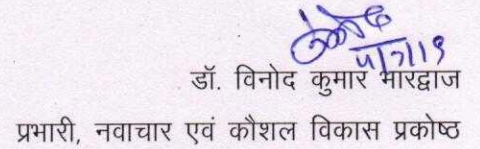 डॉ. विनोद कुमार भारद्वाज
प्रभारी, नवाचार एवं कौशल विकास प्रकोष्ठ